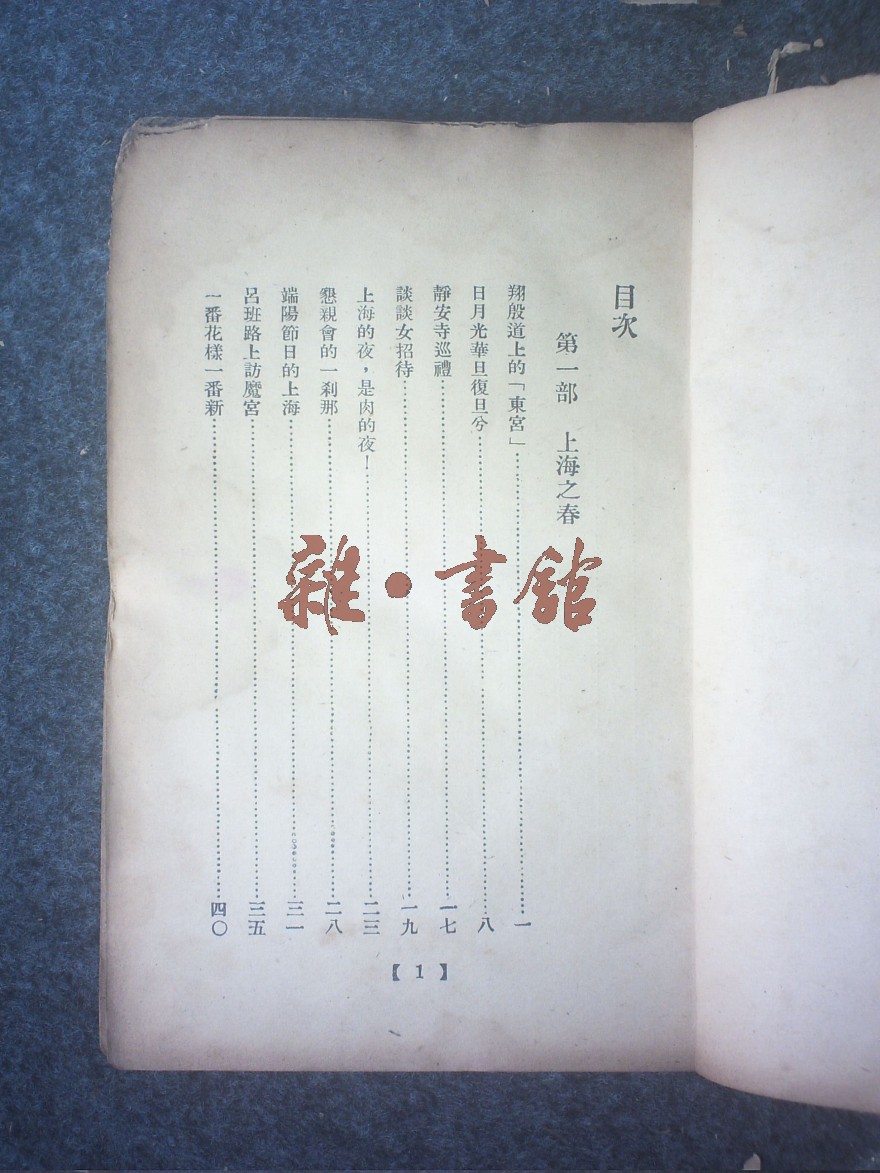 目次
第一部　上海之春
翔殷道上的「東宮」……一
日月光華旦復旦兮……八
靜安寺巡禮……一七
談談女招待……一九
上海的夜，是肉的夜！……二三
懇親會的一刹那……二八
端陽節日的上海……三一
呂班路上訪魔宮……三五
一番花樣一番新……四〇
【1】
雜·書館